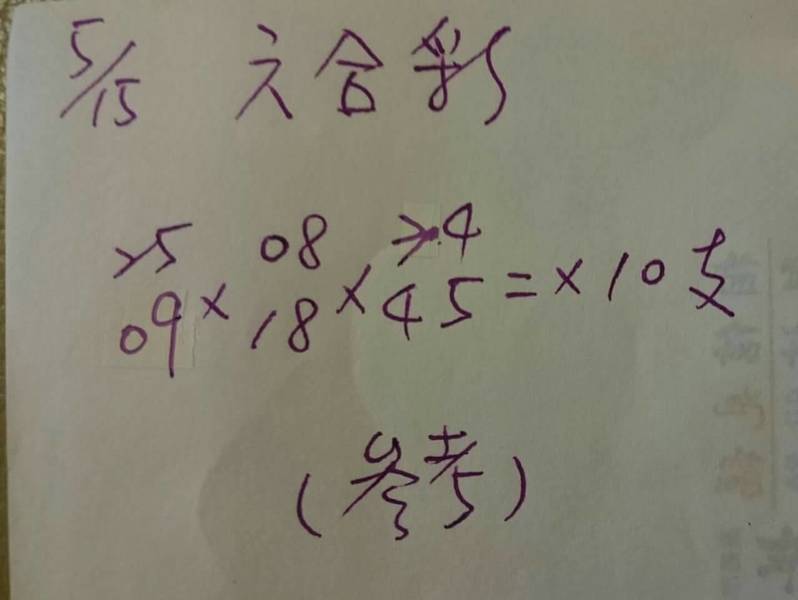 5/15 六合彩
25 08 24
09 × 18 × 45 = × 10支
(参考)